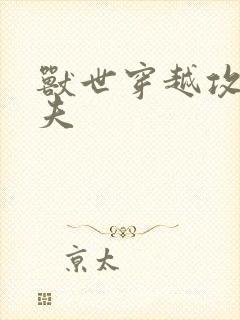 獸世穿越攻
夫
京太